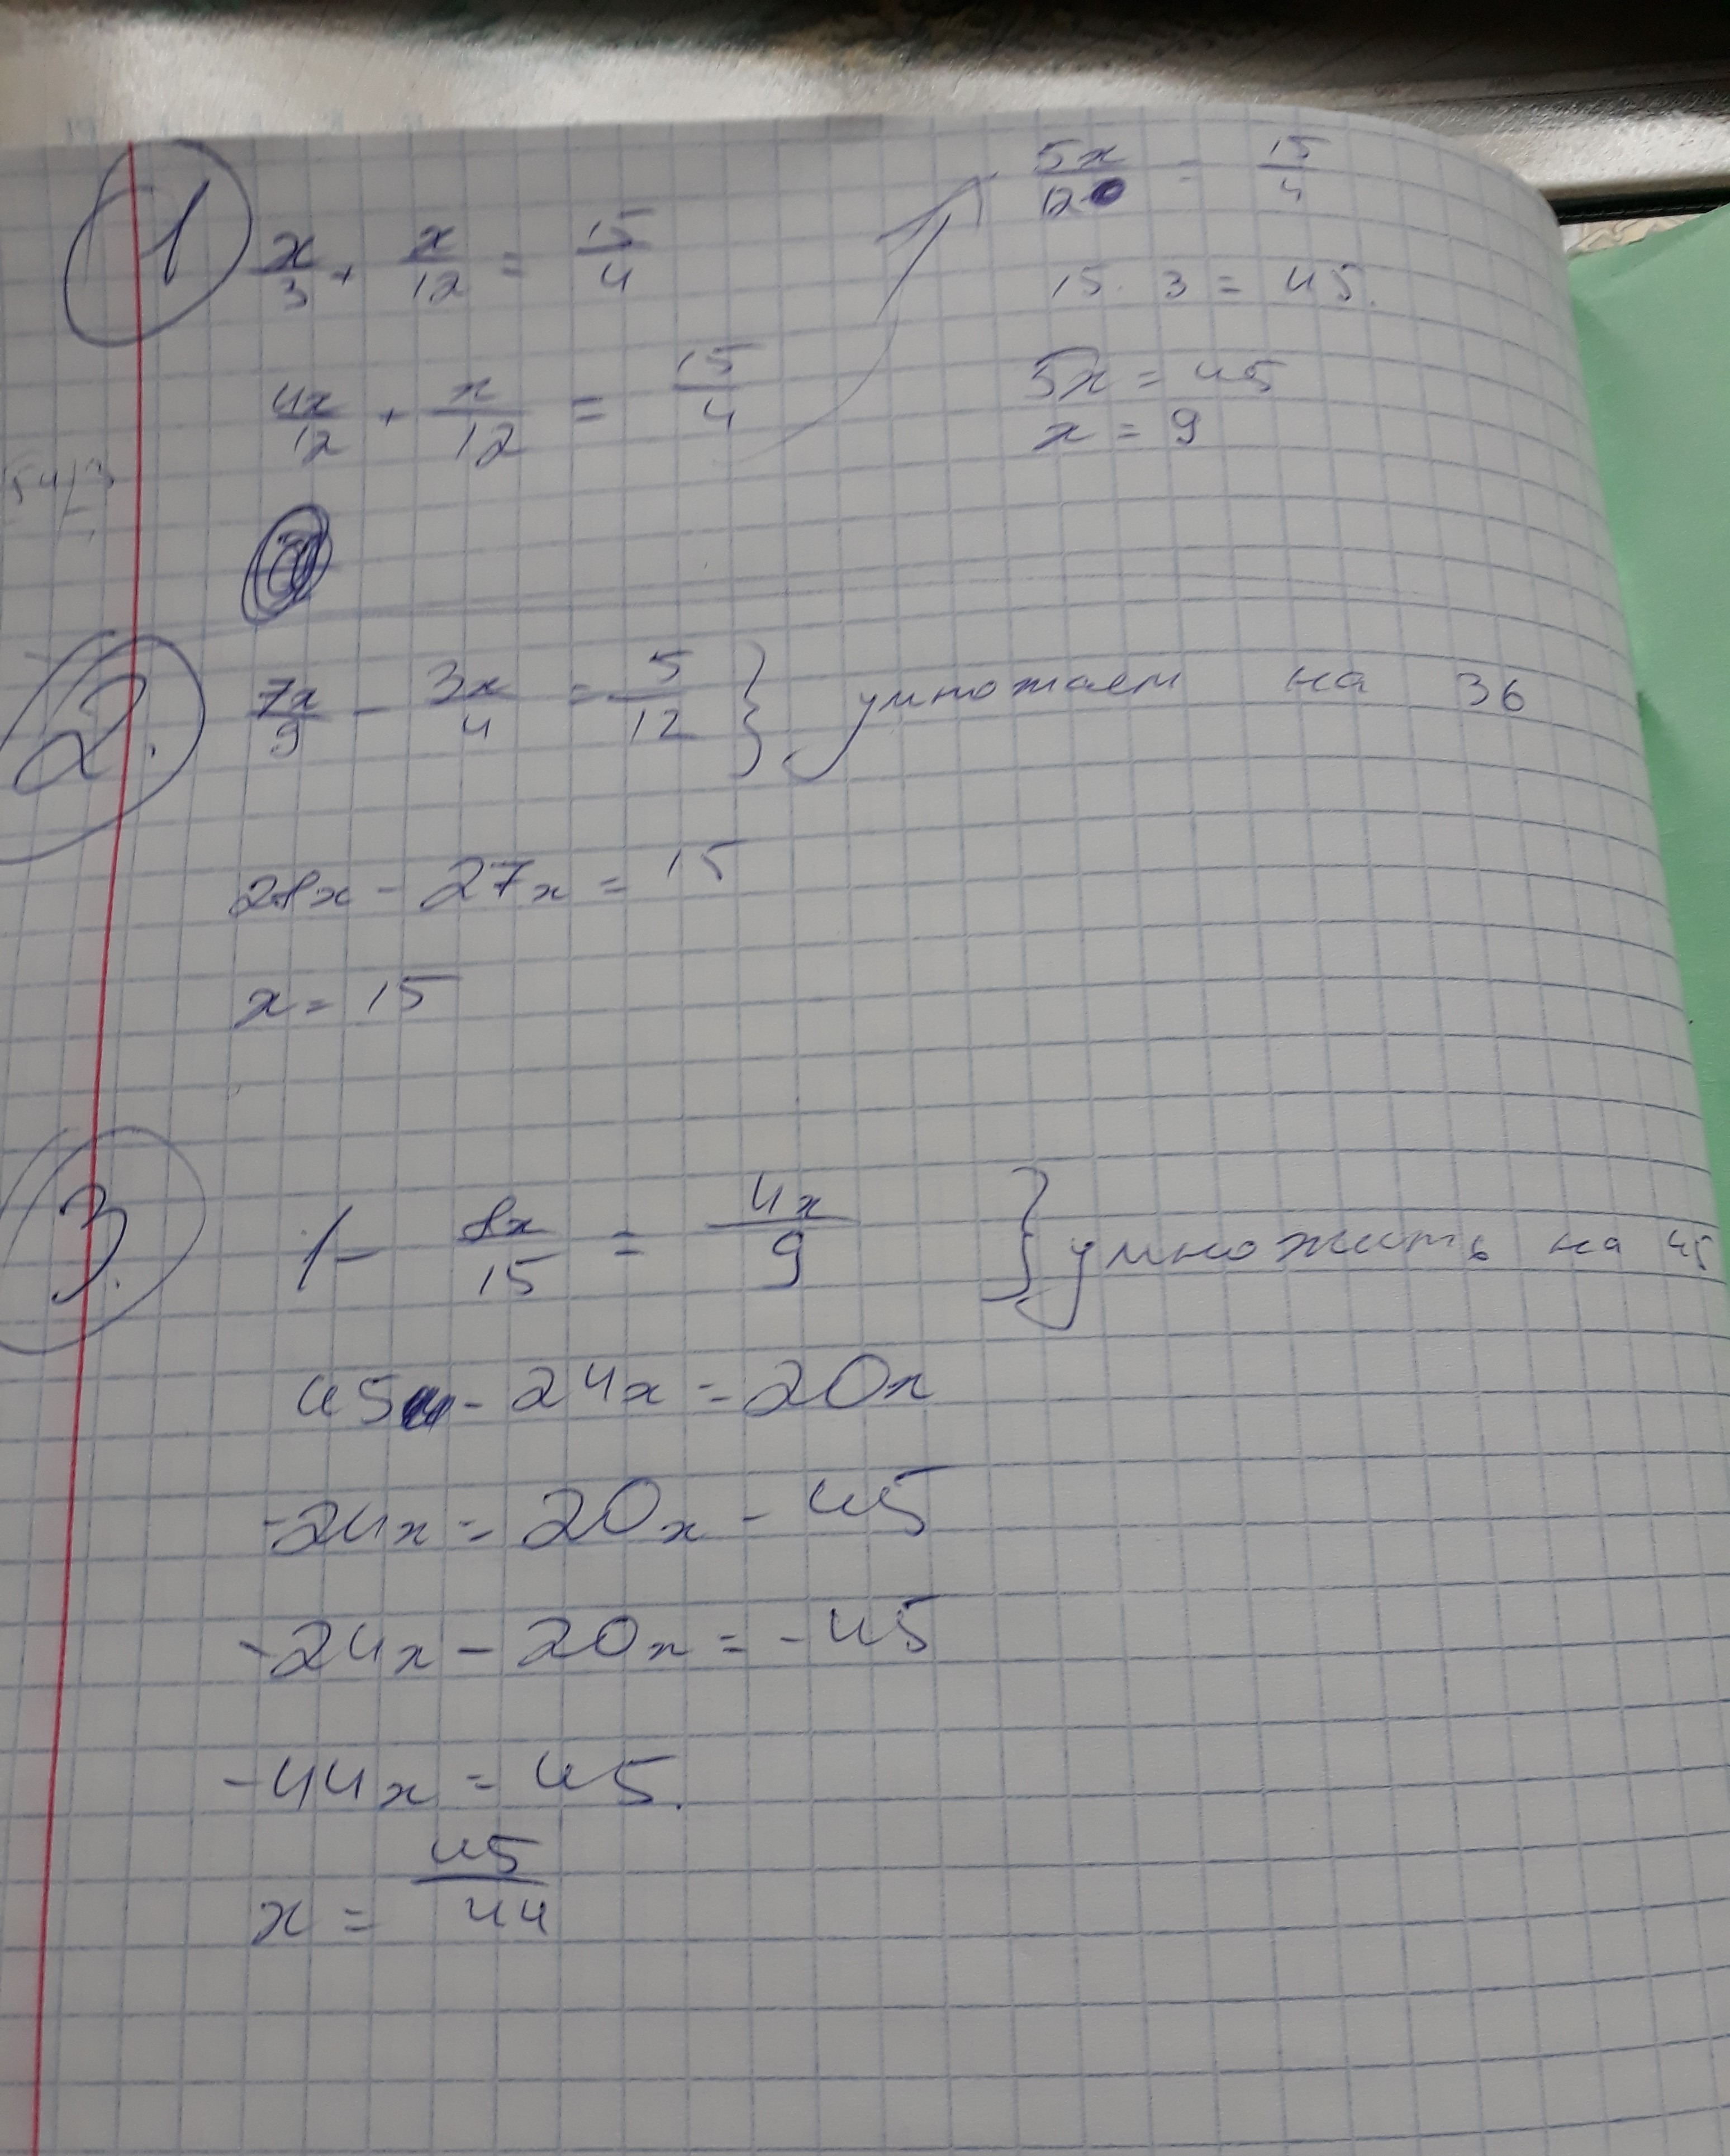 1
x/3 + x/12 = 15/4
4x/12 + x/12 = 15/4
5x/12 = 15/4
15 · 3 = 45.
5x = 45
x = 9
2.
7x/9 - 3x/4 = 5/12 } умножаем на 36
28x - 27x = 15
x = 15
3.
1 - 8x/15 = 4x/9 } умножить на 45
45 - 24x = 20x
-24x = 20x - 45
-24x - 20x = -45
-44x = 45.
x = 45/44